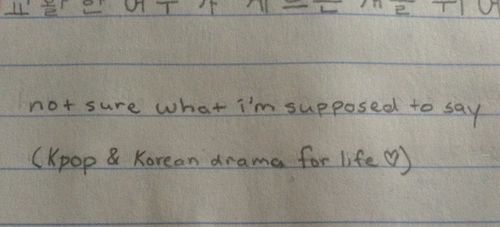 not sure what i'm supposed to say
(Kpop & Korean drama for life ♡)